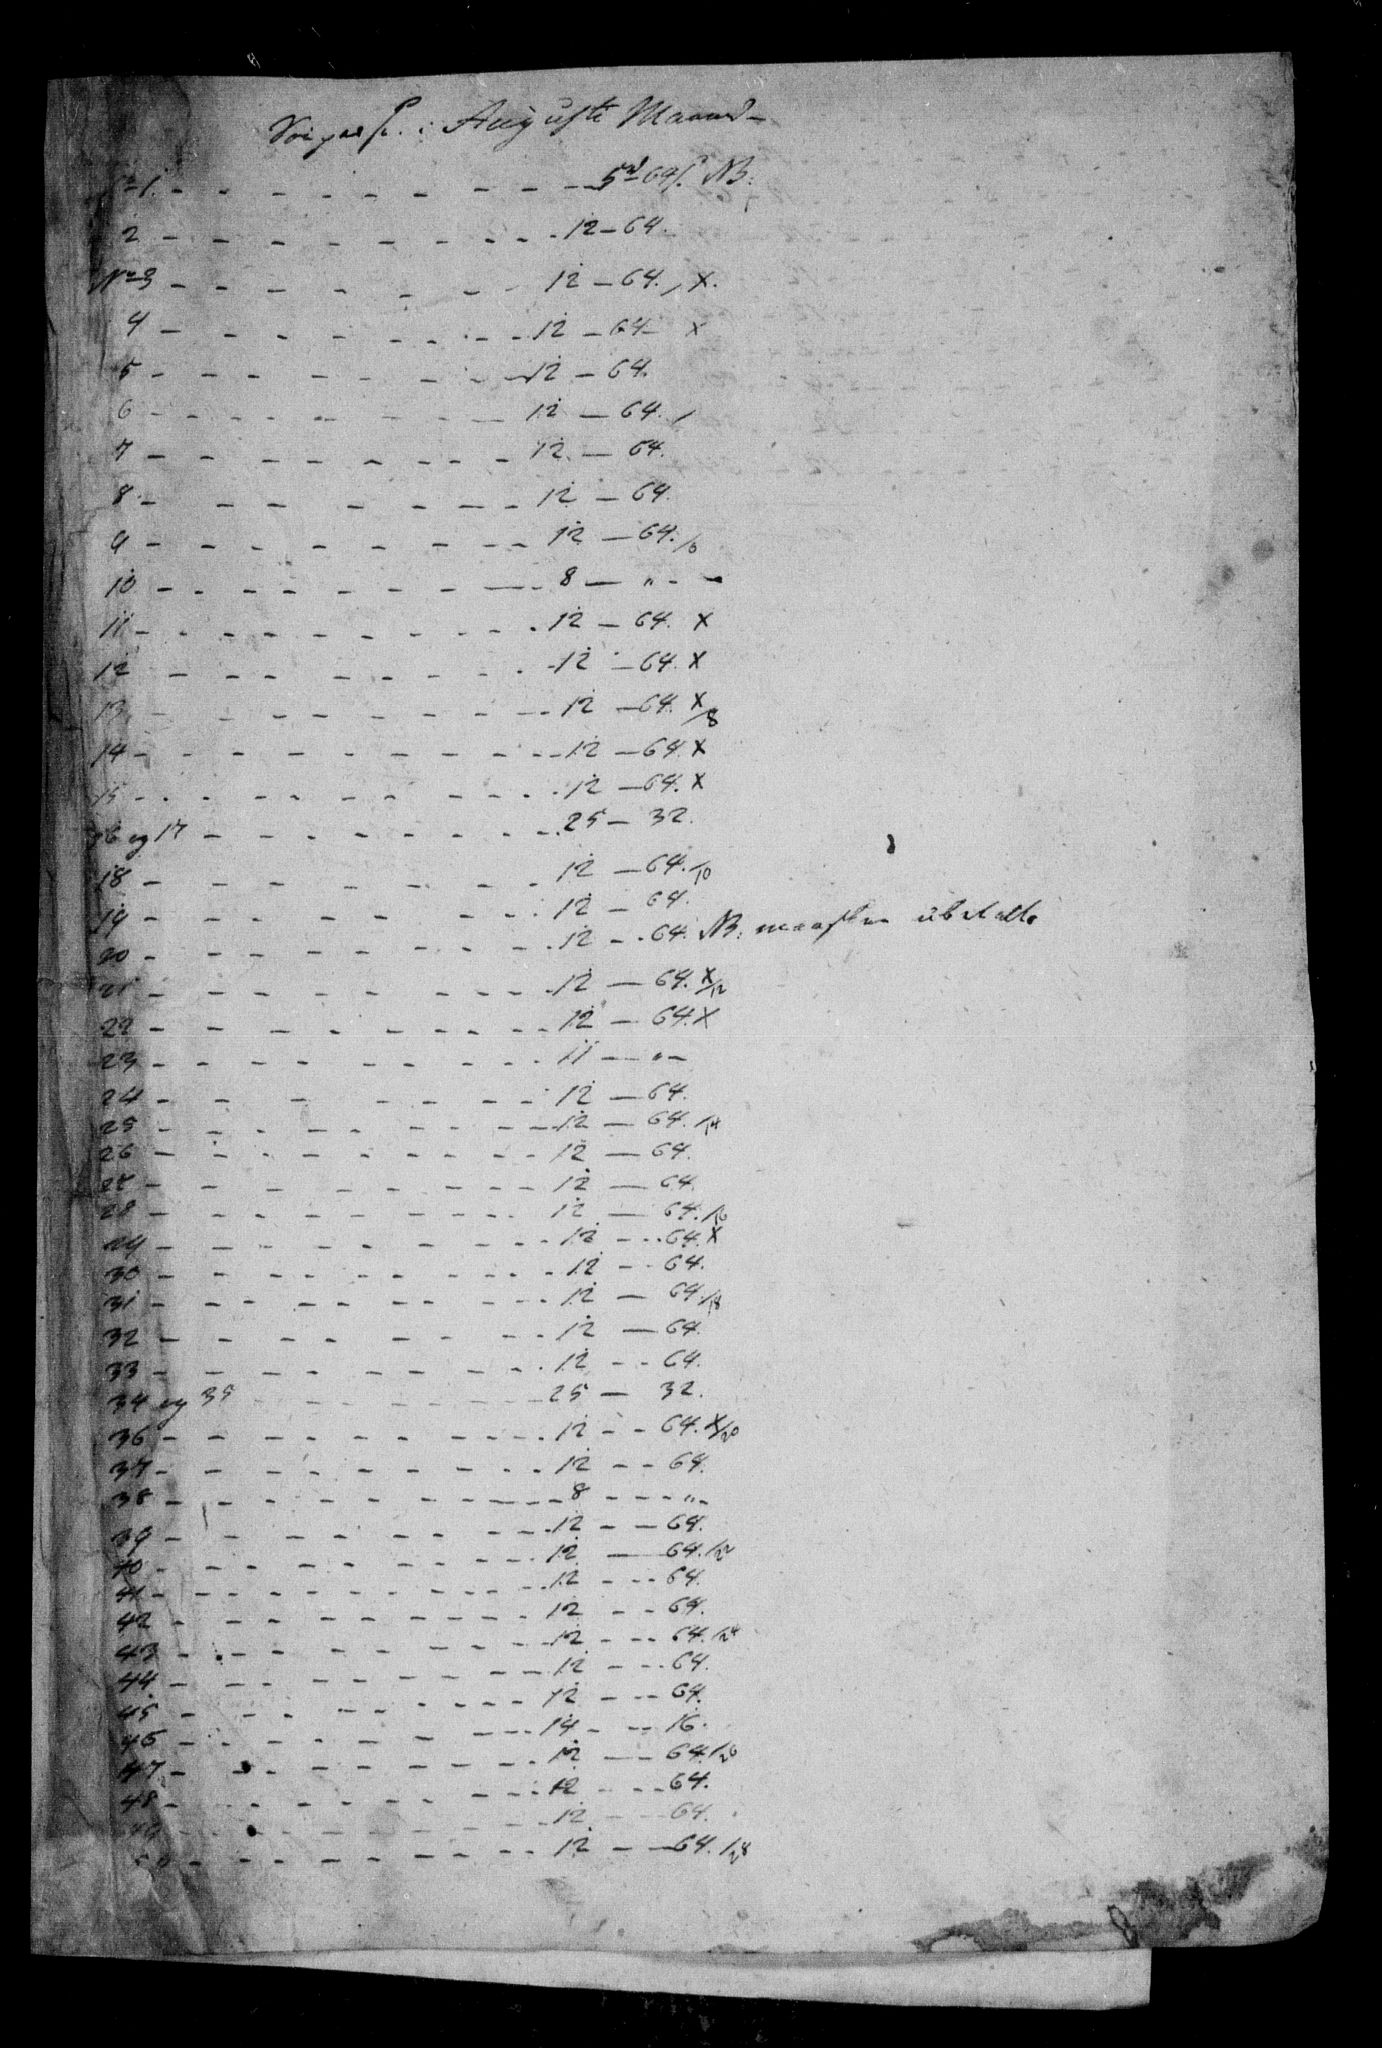 i Augusti Maaned
No 1. - - - - - - - - - 5 rd 64 s. NB:
2 - - - - - - - - - 12 - 64.
No 3 - - - - - - - 12 - 64., X.
4 - - - - - - - - 12 - 64 - X
5 - - - - - - - - 12 - 64.
6 - - - - - - - - 12 - 64. /
7 - - - - - - - - 12 - 64.
8 - - - - - - - - 12 - 64.
9 - - - - - - - - 12 - 64. /6
10 - - - - - - - - 8 - " - -
11 - - - - - - - - 12 - 64. X
12 - - - - - - - - 12 - 64. X
13 - - - - - - - - 12 - 64. X /8
14 - - - - - - - - 12 - 64 X
15 - - - - - - - - 12 - 64. X
16 og 17 - - - - - - - 25 - 32.
18 - - - - - - - 12 - 64. /10
19 - - - - - - - 12 - 64.
20 - - - - - - - 12 - 64. NB: maaskee ubetalt
21 - - - - - - - 12 - 64. X /12
22 - - - - - - - 12 - 64. X
23 - - - - - - - 11 - " -
24 - - - - - - - 12 - 64.
25 - - - - - - - 12 - 64. /14
26 - - - - - - - 12 - 64.
27 - - - - - - - 12 - 64.
28 - - - - - - - 12 - 64. /16
29 - - - - - - - 12 - 64. X
30 - - - - - - - 12 - 64.
31 - - - - - - - 12 - 64. /18
32 - - - - - - - 12 - 64.
33 - - - - - - - 12 - 64.
34 og 35 - - - - - - - 25 - 32.
36 - - - - - - - 12 - 64. X /20
37 - - - - - - - 12 - 64.
38 - - - - - - - 8 - - - " -
39 - - - - - - - 12 - 64.
40 - - - - - - - 12 - 64. /22
41 - - - - - - - 12 - 64.
42 - - - - - - - 12 - 64.
43 - - - - - - - 12 - 64. /24
44 - - - - - - - 12 - 64.
45 - - - - - - - 12 - 64.
46 - - - - - - - 14 - 16.
47 - - - - - - - 12 - 64. /26
48 - - - - - - - 12 - 64.
49 - - - - - - - 12 - 64.
50 - - - - - - - 12 - 64. /28